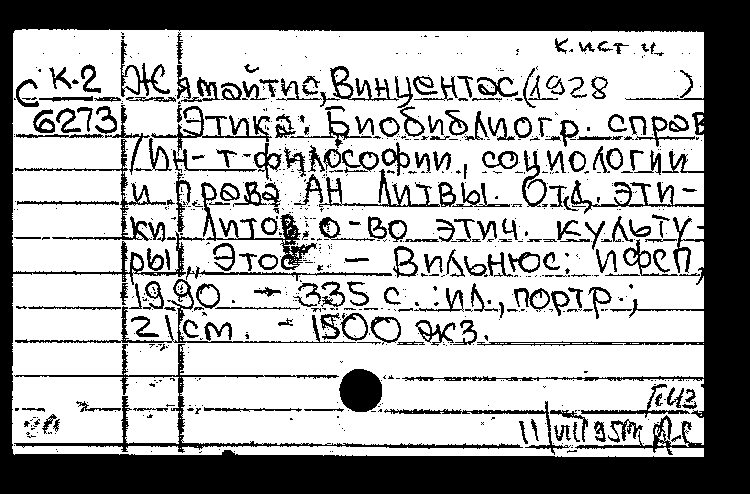 к. ист и
С К-2 Жямайтис, Винцентас (1928 )
6273 Этика: Биобиблиогр. справ
/Ин-т философии, социологии
и права АН Литвы. Отд. эти-
ки. Литов. о-во этич. культу-
ры „Этос". - Вильнюс: ИФСП,
1990. - 335 с. : ил., портр.;
21 см. - 1500 экз.
20
11/VIII 95